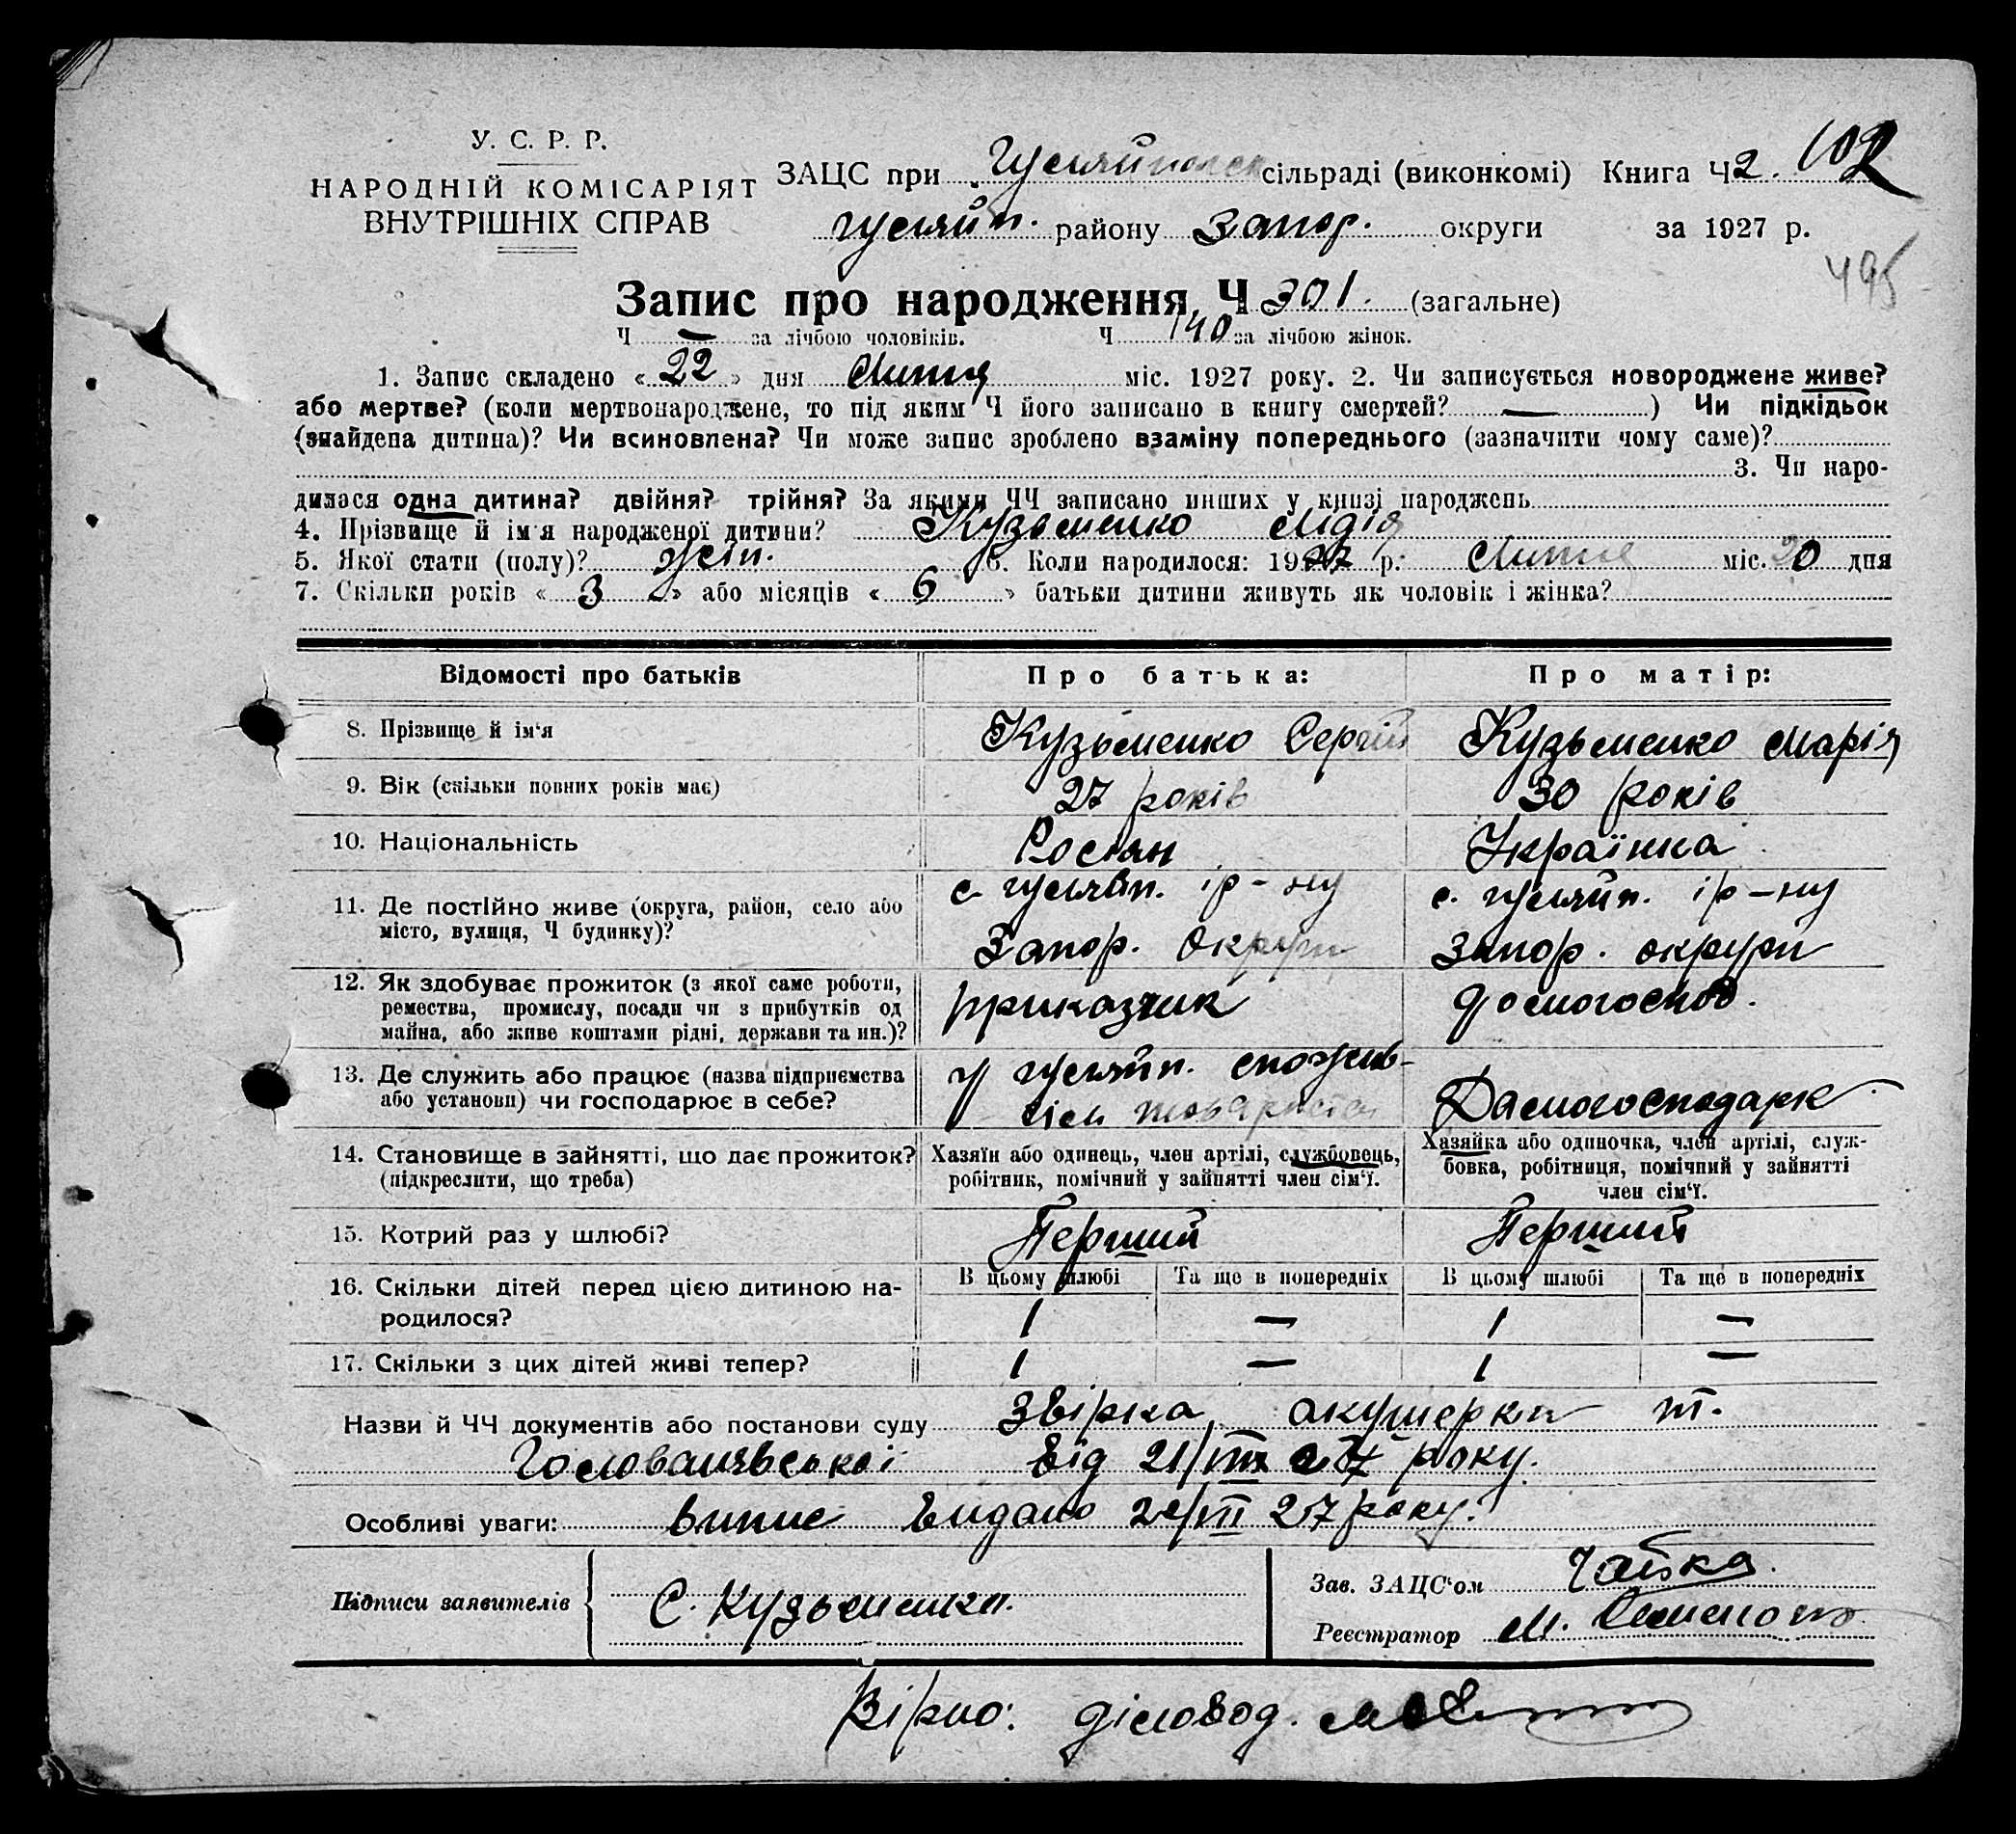 У. С. Р. Р.
НАРОДНІЙ КОМІСАРІЯТ
ВНУТРІШНІХ СПРАВ
ЗАЦС при Гуляйпольск сільраді (виконкомі) Книга Ч 2. 102
гуляйп. району Запор. округи за 1927 р.
495
Запис про народження Ч 301. (загальне)
Ч — за лічбою чоловіків. Ч 140 за лічбою жінок.
1. Запис складено « 22 » дня Липця міс. 1927 року. 2. Чи записується новороджене живе?
або мертве? (коли мертвонароджене, то під яким Ч його записано в книгу смертей? — ) Чи підкідьок
(знайдена дитина)? Чи всиновлена? Чи може запис зроблено взаміну попереднього (зазначити чому саме)?
3. Чи наро-
дилася одна дитина? двійня? трійня? За якими ЧЧ записано инших у книзі народжень
4. Прізвище й ім'я народженої дитини? Кузьменко Лідія
5. Якої стати (полу)? жін. 6. Коли народилося: 1927 р. Липця міс. 20 дня
7. Скільки років « 3 » або місяців « 6 » батьки дитини живуть як чоловік і жінка?
Відомості про батьків Про батька: Про матір:
8. Прізвище й ім'я Кузьменко Сергій Кузьменко Марія
9. Вік (скільки повних років має) 27 років 30 років
10. Національність Росіян Українка
11. Де постійно живе (округа, район, село або с. гуляйп. ір-ну с. гуляйп. ір-ну
місто, вулиця, Ч будинку)? Запор. округи Запор. округи
12. Як здобуває прожиток (з якої саме роботи,
ремества, промислу, посади чи з прибутків од приказчик домогоспод.
майна, або живе коштами рідні, держави та ин.)?
13. Де служить або працює (назва підприємства у гуляйп. спожив-
або установи) чи господарює в себе? чім товаристві Дамогосподарк
14. Становище в зайнятті, що дає прожиток? Хазяїн або одинець, член артілі, службовець, Хазяйка або одиночка, член артілі, служ-
(підкреслити, що треба) робітник, помічний у зайнятті член сім'ї. бовка, робітниця, помічний у зайнятті
член сім'ї.
15. Котрий раз у шлюбі? Перший Перший
16. Скільки дітей перед цією дитиною на- В цьому шлюбі Та ще в попередніх В цьому шлюбі Та ще в попередніх
родилося? 1 — 1 —
17. Скільки з цих дітей живі тепер? 1 — 1 —
Назви й ЧЧ документів або постанови суду Звірка акушерки т.
Головачівської від 21/VII 27 року.
Особливі уваги: випис видано 22/VII 27 року.
Підписи заявителів С. Кузьменко.
Зав. ЗАЦС'ом Чайка.
Реєстратор М.
Вірно: діловод.